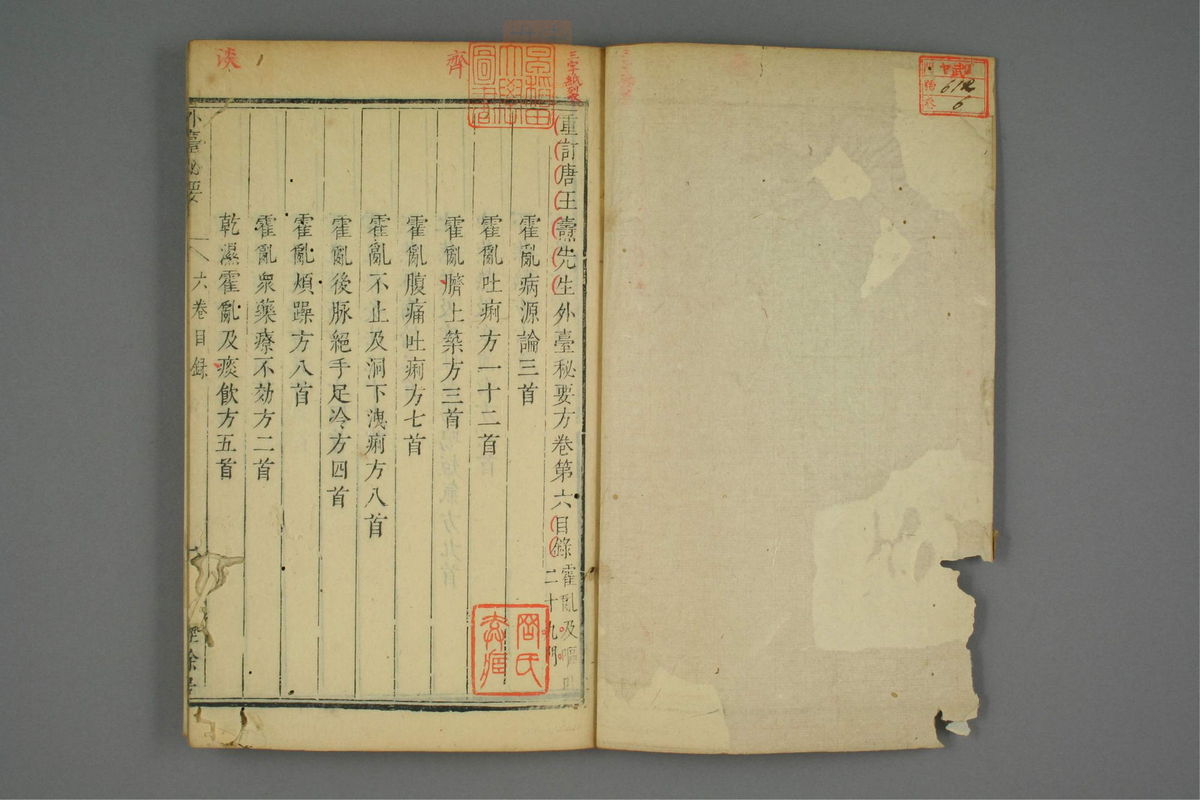 重訂唐王燾先生外臺秘要方卷第六目錄
霍亂及嘔
二十九門
霍亂病源論三首
霍亂吐痢方一十二首
霍亂臍上築方三首
霍亂腹痛吐痢方七首
霍亂不止及洞下洩痢方八首
霍亂後脉絕手足冷方四首
霍亂煩躁方八首
霍亂衆藥療不効方二首
乾濕霍亂及痰飲方五首
外臺秘要
六卷目錄
齊
淡
612
6